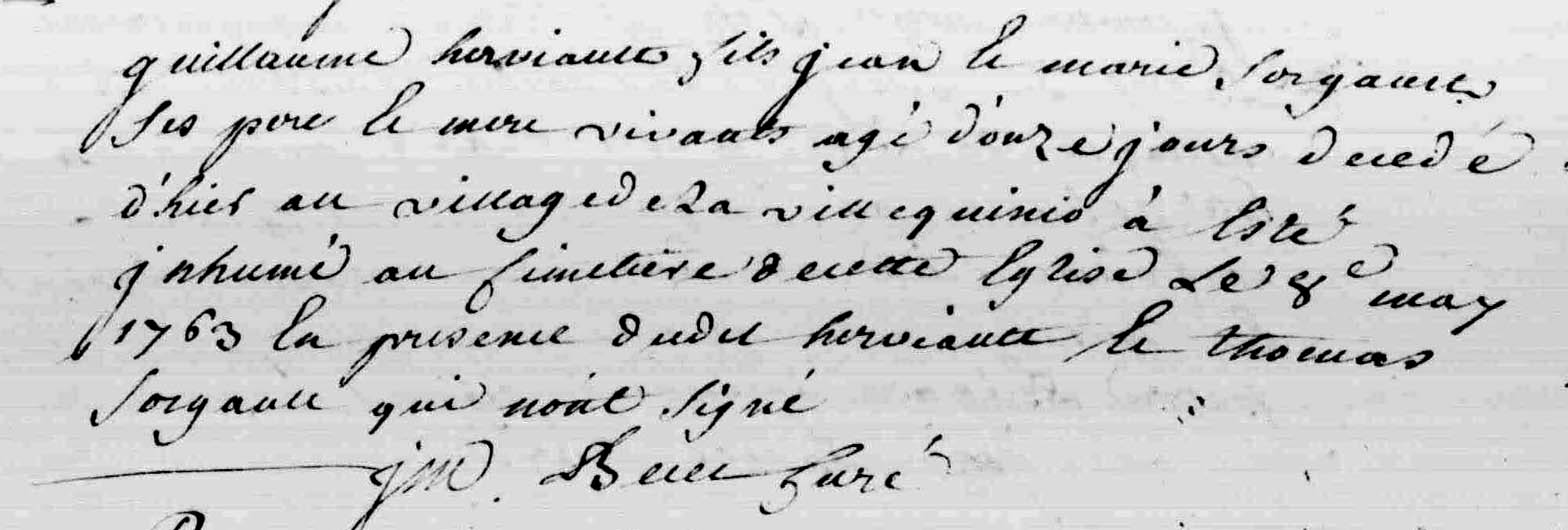 guillaume herviault fils jean et marie Sorgault
Ses pere et mere vivants agé d'onze jours decedé
d'hier au village de la ville quinio à été
jnhumé au cimetiere de cette Eglise Le 8e may
1763 En presence dudit herviault et thomas
Sorgault qui n'ont signé
jM. curé